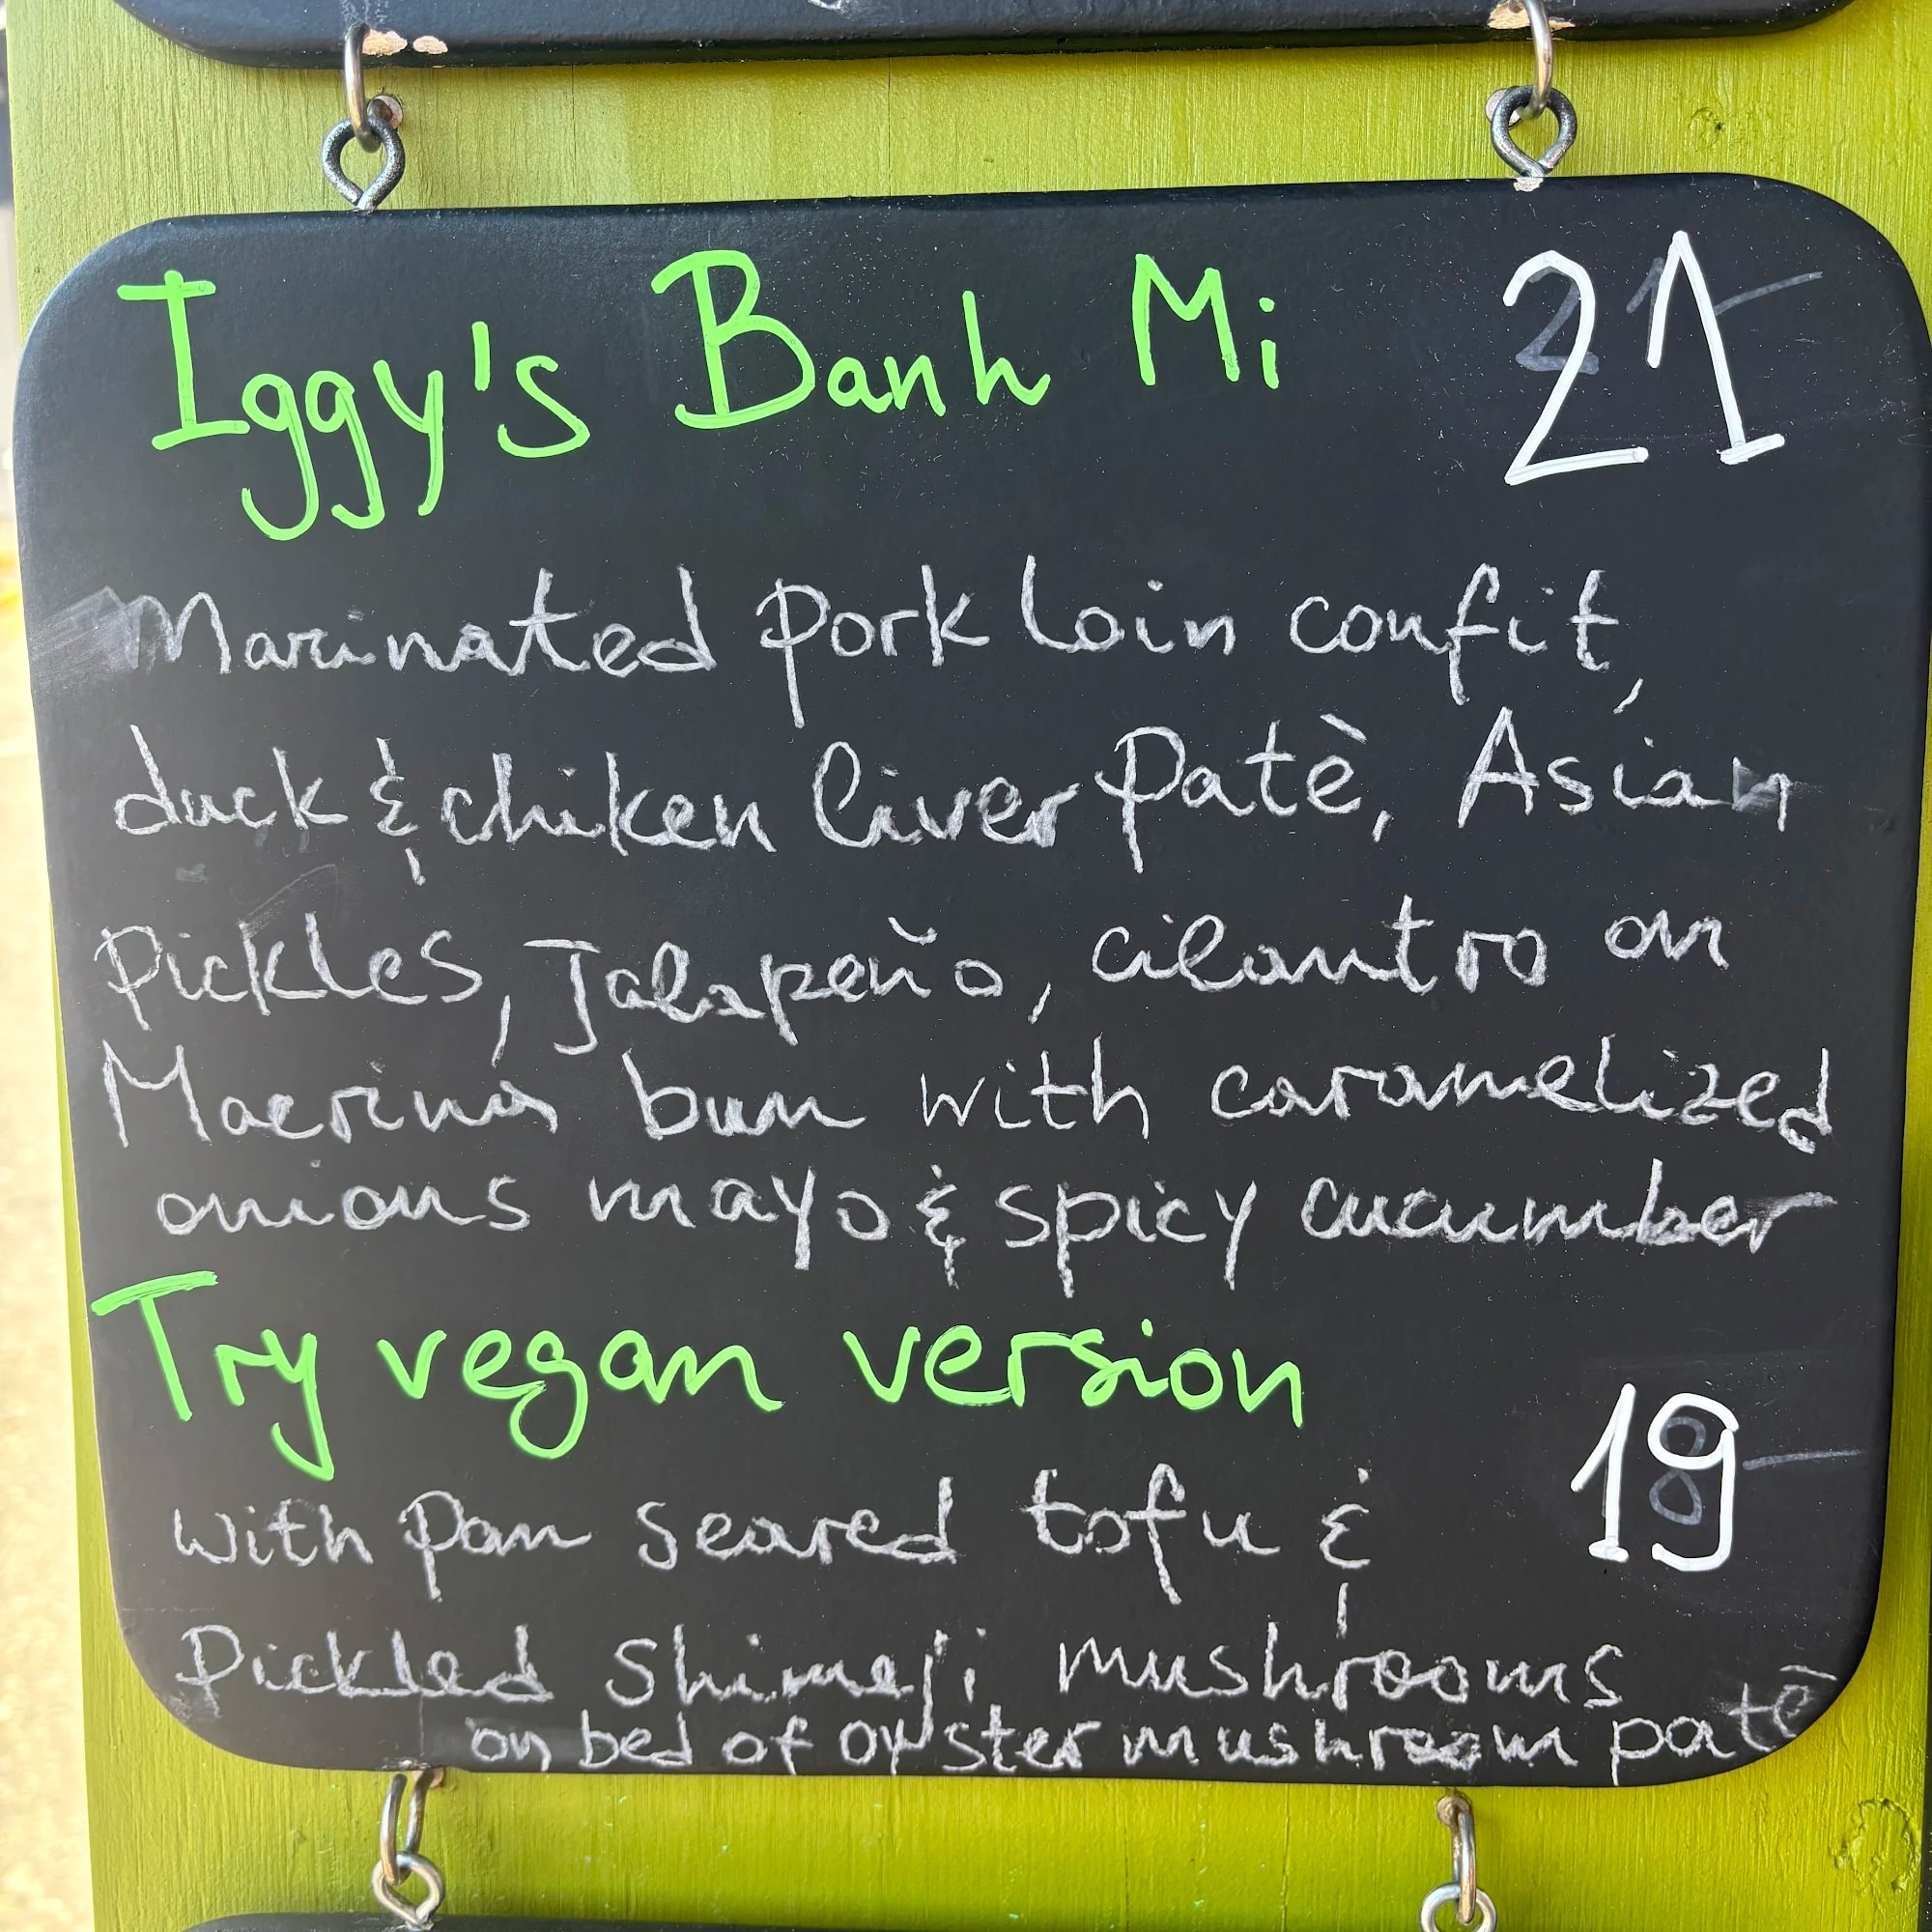 Iggy's Banh Mi 21
Marinated pork loin confit,
duck & chiken liver Patè, Asian
Pickles, Jalapeño, cilantro on
Macrina bun with caramelized
onions mayo & spicy cucumber
Try vegan version
19
with pan seared tofu &
Pickled Shimeji mushrooms
on bed of oyster mushroom patè